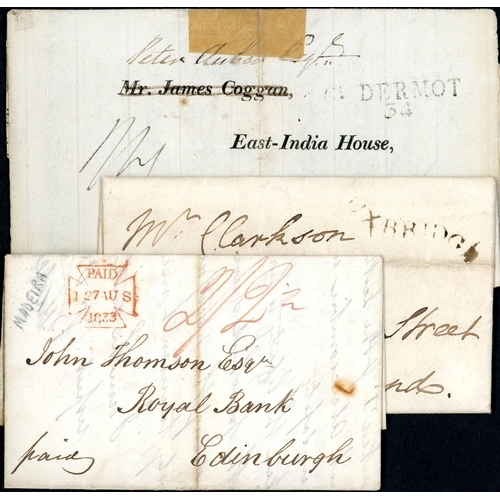 Peter Auber Esqr.
Mr. James Coggan,
DERMOT
34
East-India House,
Mr. Clarkson
Street
MADEIRA
PAID
27 AU S
1833
2/2
John Thomson Esqr.
Royal Bank
Edinburgh
paid